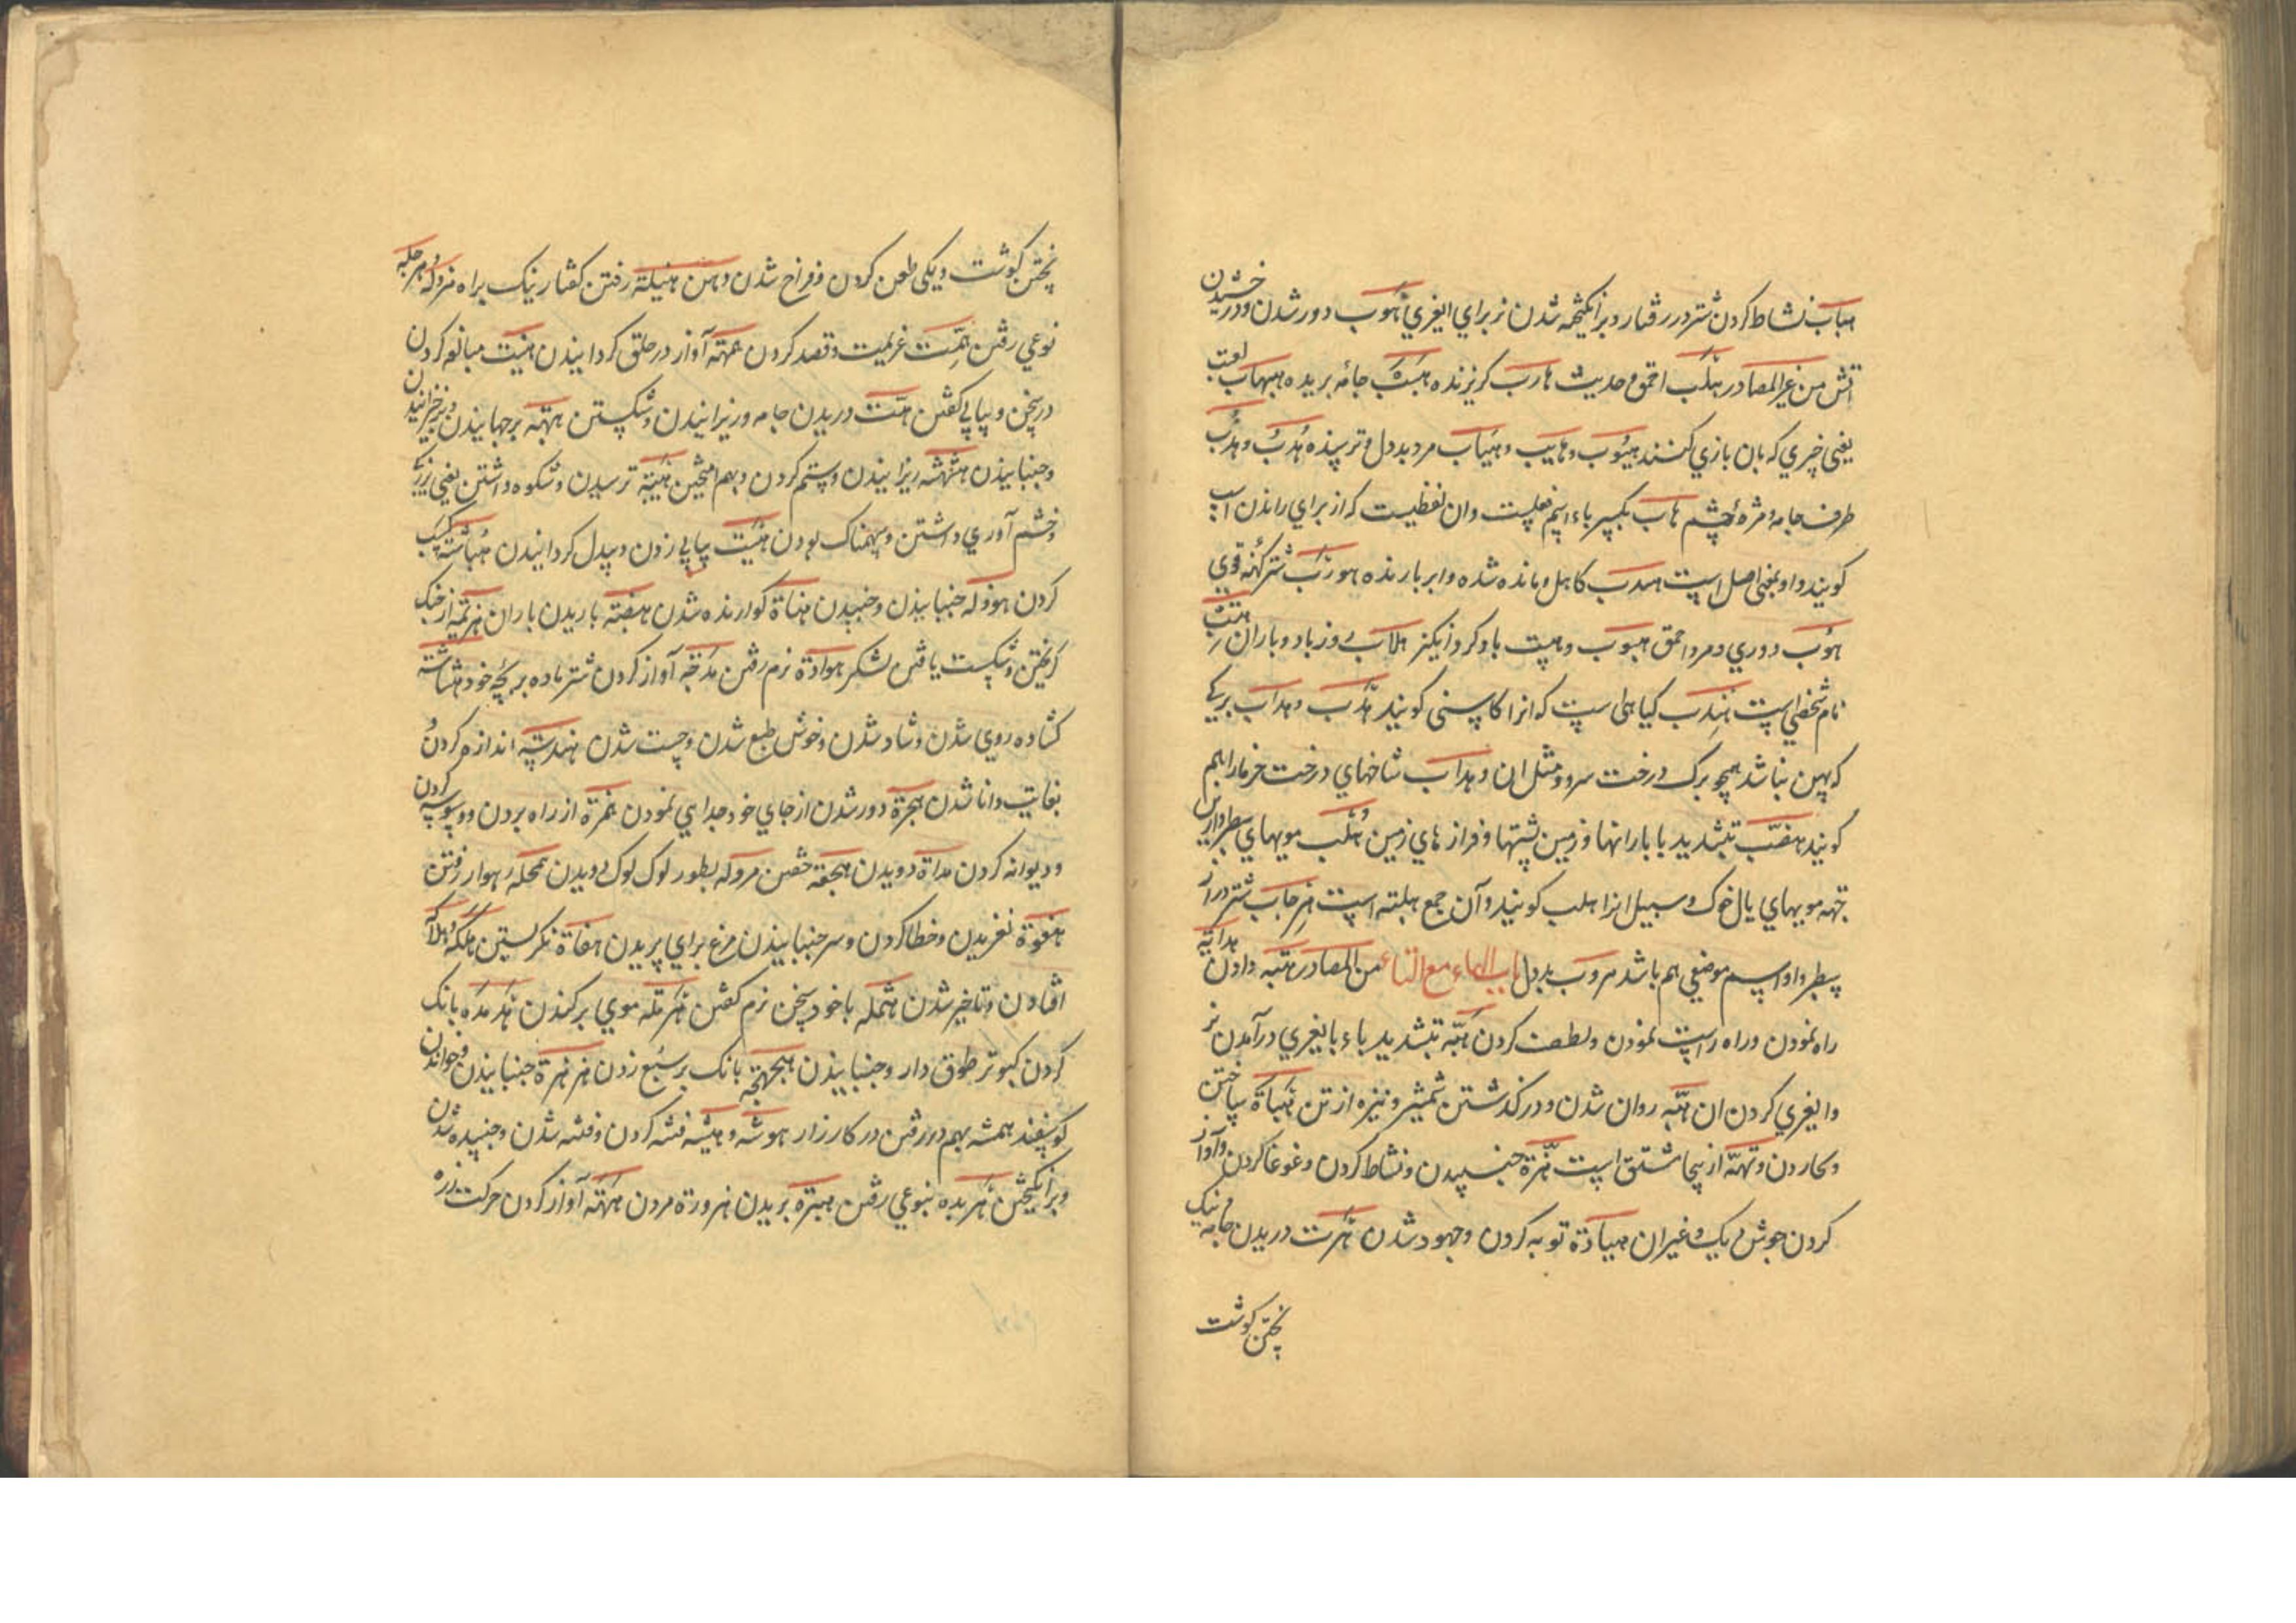 هباب نشاط کردن شتر در رفتار و برانکیخته شدن نر برای ایغری اُهُوب دور شدن و درخشیدن
آتش من غیر المصادر هَلَب حدیث هارب کریزنده هَبَب جامه بریده هبهاب لعب
یعنی چیزی که بان بازی کنند هَیُوب و هایب و هَیاب مرد بددل و ترسنده هُدب و هُدُب
طرف جامه و مژه چشم هاب بکسر باء اسم فعلست و ان لفظیست که از برای راندن اسب
کویند و او بمعنی اصل است هیدب کاهل و مانده شده و ابر بارنده هوزَب شتر کُهنه قوی
هَوب دوری و مرد احمق هبوب و هبیب باد کرد انکیز هلاب روز باد و باران
نام شخصی است هندب کیاهی است که انرا کاسنی کویند هَدَب و هداب برکی
که پهن نباشد همچو برک درخت سرو و مثل ان و هداب شاخهای درخت خرما را هم
کویند هضب بتشدید با بارانها و زمین پشتها و فرازهای زمین و هُلب مویهای سطبر و از این
جهه مویهای یال خوک و سبیل انرا هلب کویند و آن جمع هلبته است هِرجاب شتر دراز
سطبر و او اسم موضعی هم باشد هروب بددل باب الهاء مع التاء من المصادر هبه دادن هدایة
راه نمودن و راه راست نمودن و لطف کردن هَبّه بتشدید باء با یغری درآمدن نر
و ایغری کردن ان هَبّه روان شدن و در گذشتن شمشیر و نیزه از تن هیاة ساختن
و کاردن و تهیه از ینجا مشتق است هِزّة جنبیدن و نشاط کردن و غوغا کردن و آواز
کردن جوش دیک و غیر ان هیادة توبه کردن و جهود شدن هَرت دریدن جامه و نیک
پختن کوشت
پختن کوشت و یکی طعن کردن و فراخ شدن دهن هنیلة رفتن کفتار نیک براه هرولة و هرجلة
نوعی رفتن هِمّت عزیمت و قصد کردن همهمة آواز در حلق کردانیدن هنیت مبالغه کردن
در سخن و پیاپی کفتن هَتّت دریدن جامه و ریزانیدن و شکستن هبهبه برجهانیدن و برخیزانیدن
و جنبانیدن هثهثه ریزانیدن و ستم کردن و بهم امیختن هَیبة ترسیدن و شکوه داشتن یعنی بزرک
و خشم آوری داشتن و سهمناک بودن هَبت پیاپی زدن و بیدل کردانیدن هُباشة کسب
کردن هوذلة جنبانیدن و جنبیدن هناة کوارنده شدن هضبة باریدن باران هزیمة از جنک
کریختن و شکست یافتن لشکر هوادة نرم رفتن هدجة آواز کردن شتر ماده بر بچه خود هشاشة
کشاده روی شدن و شاد شدن و خوش طبع شدن و چست شدن هندسة اندازه کردن
بغایت دانا شدن هجرة دور شدن از جای خود و جدایی نمودن همزة از راه بردن و وسوسه کردن
و دیوانه کردن هداة دویدن هجعة خفتن هروله بطور لوک لوک دویدن هملجة رهوار رفتن
هفوة لغزیدن و خطا کردن و سر جنبانیدن مرغ برای پریدن هفاة نکریستن هلکة و هلاکة
افتادن و تاخیر شدن هتملة با خود سخن نرم کفتن هَرتلة موی برکندن هَدهدة بانک
کردن کبوتر طوق دار و جنبانیدن هجهجة بانک بر سبع زدن هزهزة جنبانیدن و خواندن
کوسفند همشه بهم در رفتن در کارزار هوشة و هیشة فتنه کردن و فتنه شدن و جنبیده شدن
و برانکیختن هَربده بنوعی رفتن هبترة بریدن هرورة مردن هَهتة آواز کردن حرکت نزده